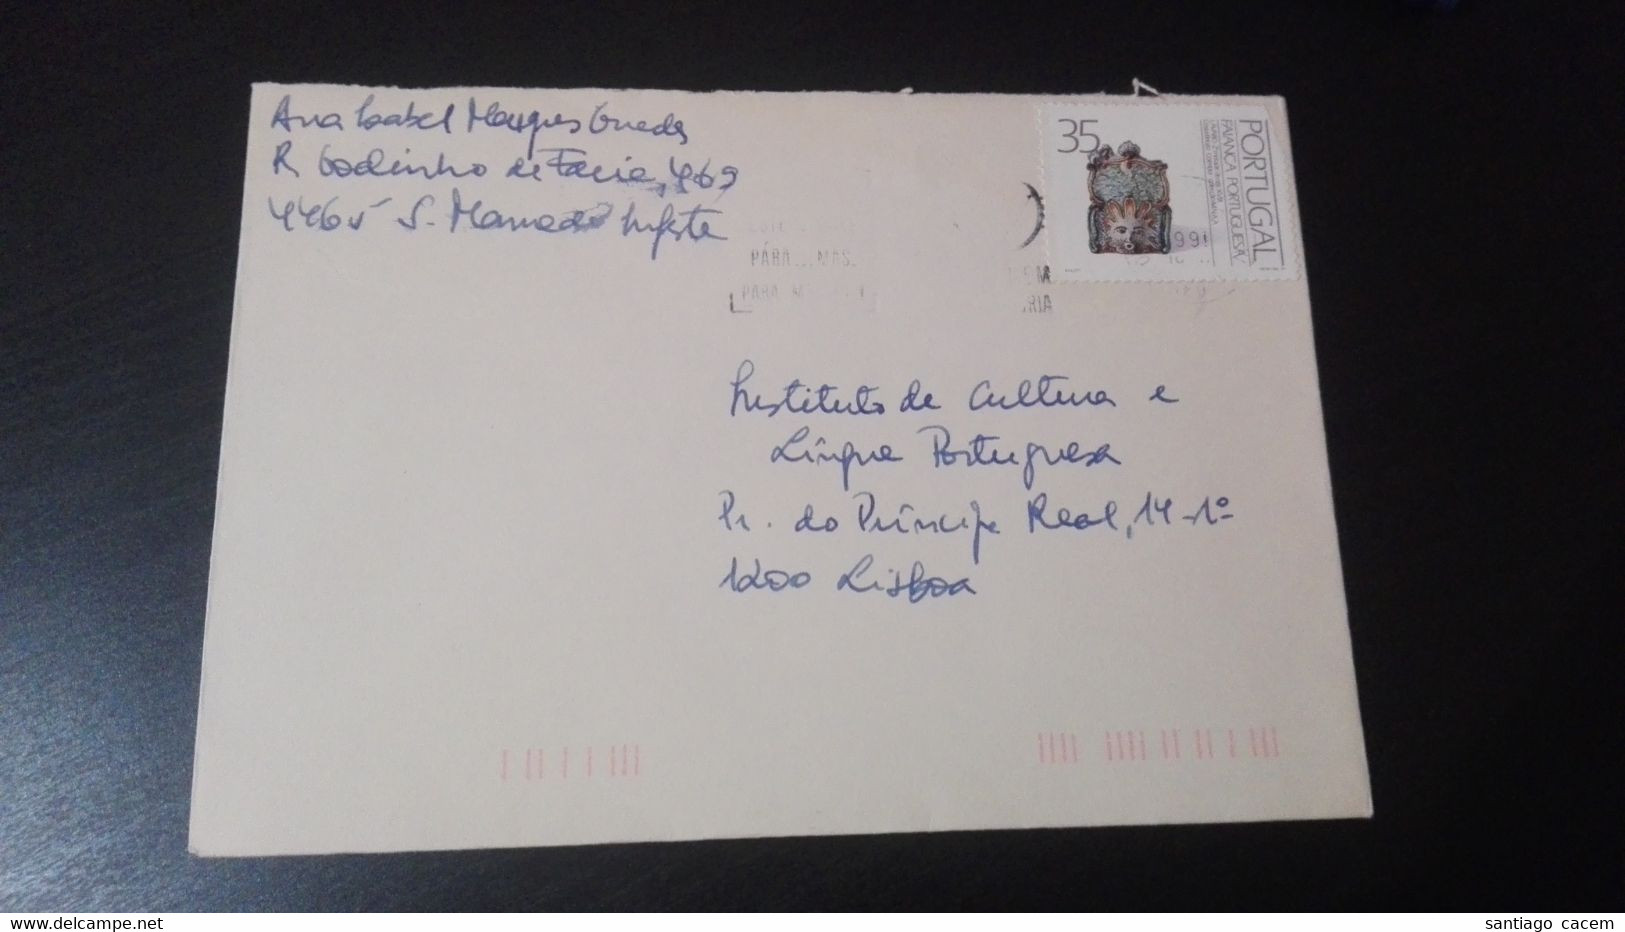 Ana Isabel Marques Guedes
R Godinho de Faria, 469
4465 S. Mamede Infesta
35
PORTUGAL
FAIANÇA PORTUGUESA
PARA
PARA
Instituto de Cultura e
Língua Portuguesa
Pr. do Príncipe Real, 14-1º
1200 Lisboa
delcampe.net
santiago cacem